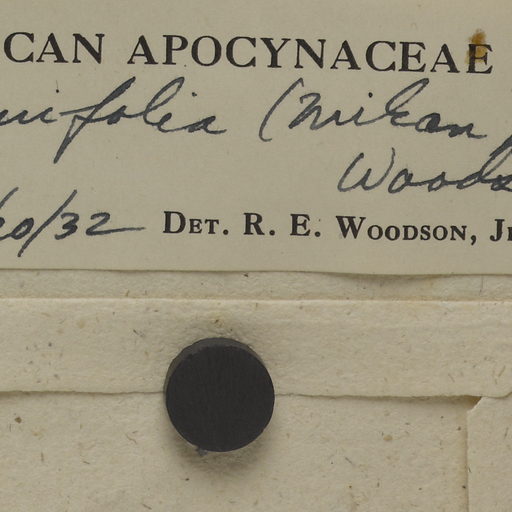 CAN APOCYNACEAE
uifolia (Mikan
Woods
20/32 DET. R. E. WOODSON, J